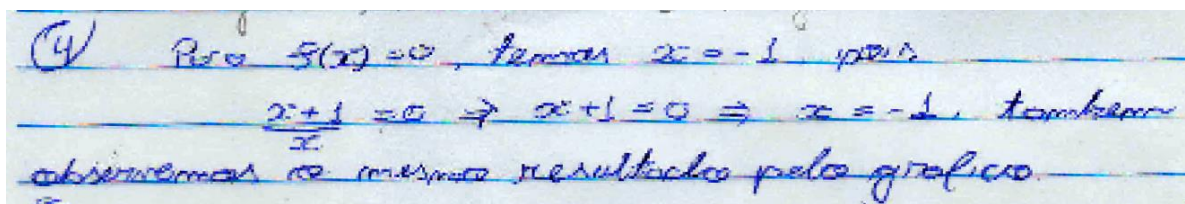 (4) Para f(x)=0, temos x=-1 pois
x+1/x =0 ⇒ x+1=0 ⇒ x=-1. tambem
observemos o mesmo resultado pelo grafico.